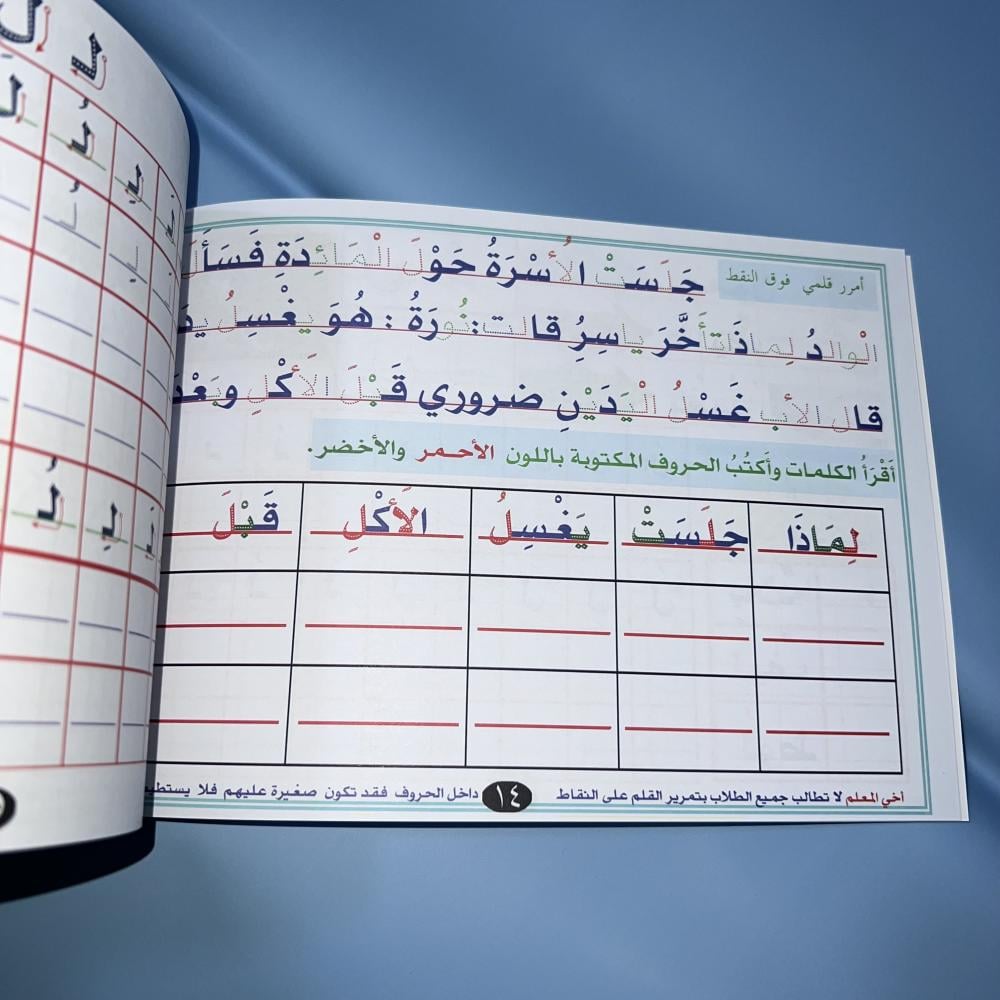 أمرر قلمي فوق النقط
جَلَسَتْ الأُسْرَةُ حَوْلَ الْمَائِدَةِ
الْوالدُ لِماذَا تأَخَّرَ ياسِرُ قالت: نُورَةُ : هُوَ يغْسِلُ
قال الأب غَسْلُ الْيَدَيْنِ ضروري قَبْلَ الأَكْلِ
أَقْرَأُ الكلمات وأَكتُبُ الحروف المكتوبة باللون الأحمر والأخضر.
لِمَاذَا جَلَسَتْ يَغْسِلُ الأَكْلِ قَبْلَ
أخي المعلم لا تطالب جميع الطلاب بتمرير القلم على النقاط ١٤ داخل الحروف فقد تكون صغيرة عليهم فلا